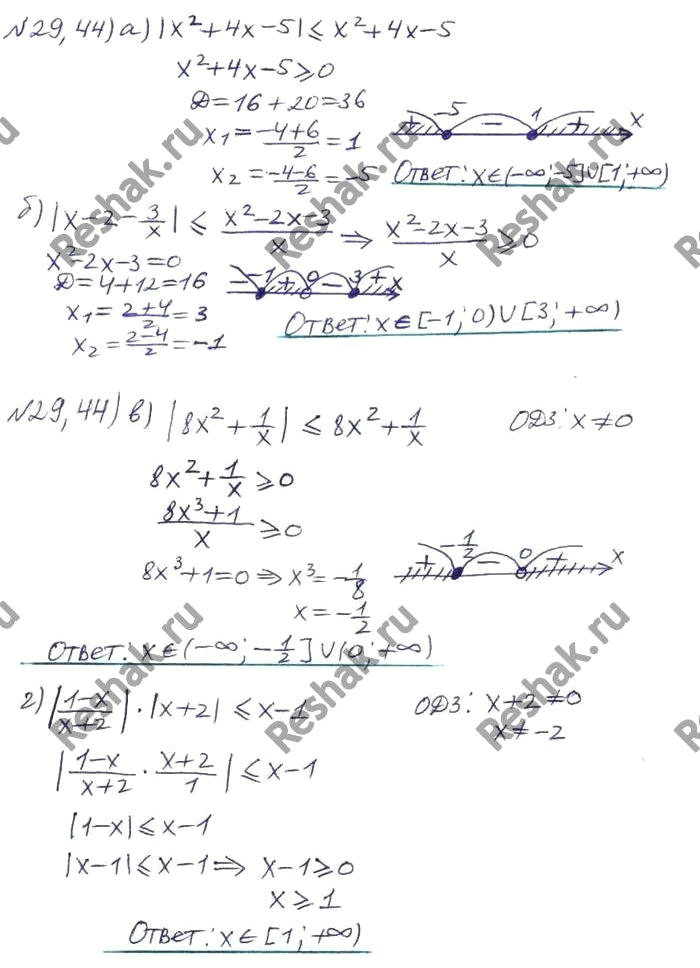 №29,44) а) |x²+4x−5| ≤ x²+4x−5
x²+4x−5 ≥ 0
Д=16+20=36
x₁ = (−4+6)/2 = 1
x₂ = (−4−6)/2 = −5
+ −5 − 1 + x
Ответ: x∈(−∞;−5]∪[1;+∞)
б) |x−2−3/x| ≤ (x²−2x−3)/x ⇒ (x²−2x−3)/x ≥ 0
x²−2x−3=0
Д=4+12=16
x₁ = (2+4)/2 = 3
x₂ = (2−4)/2 = −1
− −1 + 0 − 3 + x
Ответ: x∈[−1;0)∪[3;+∞)
№29,44) в) |8x²+1/x| ≤ 8x²+1/x ОДЗ: x≠0
8x²+1/x ≥ 0
(8x³+1)/x ≥ 0
8x³+1=0 ⇒ x³=−1/8
x=−1/2
+ −1/2 − 0 + x
Ответ: x∈(−∞;−1/2]∪(0;+∞)
г) |(1−x)/(x+2)|·|x+2| ≤ x−1 ОДЗ: x+2≠0
x≠−2
|(1−x)/(x+2)·(x+2)/1| ≤ x−1
|1−x| ≤ x−1
|x−1| ≤ x−1 ⇒ x−1≥0
x≥1
Ответ: x∈[1;+∞)
Reshak.ru
Reshak.ru
Reshak.ru
Reshak.ru
Reshak.ru
Reshak.ru